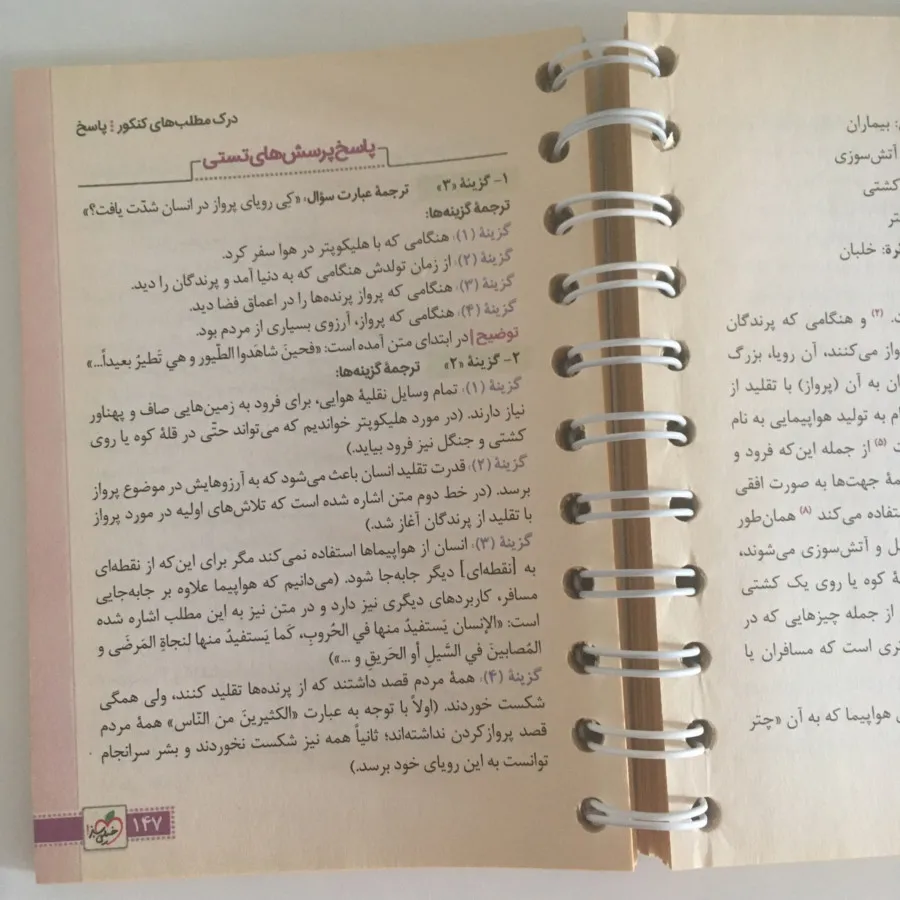 درک مطلب‌های کنکور : پاسخ
پاسخ پرسش‌های تستی
۱- گزینهٔ «۳» ترجمهٔ عبارت سؤال: «کِی رویای پرواز در انسان شدّت یافت؟»
ترجمهٔ گزینه‌ها:
گزینهٔ (۱): هنگامی که با هلیکوپتر در هوا سفر کرد.
گزینهٔ (۲): از زمان تولدش هنگامی که به دنیا آمد و پرندگان را دید.
گزینهٔ (۳): هنگامی که پرواز پرنده‌ها را در اعماق فضا دید.
گزینهٔ (۴): هنگامی که پرواز، آرزوی بسیاری از مردم بود.
توضیح| در ابتدای متن آمده است: «فحینَ شاهَدوا الطّیور و هي تَطیرُ بعیداً...»
۲- گزینهٔ «۲» ترجمهٔ گزینه‌ها:
گزینهٔ (۱): تمام وسایل نقلیهٔ هوایی، برای فرود به زمین‌هایی صاف و پهناور
نیاز دارند. (در مورد هلیکوپتر خواندیم که می‌تواند حتّی در قلهٔ کوه یا روی
کشتی و جنگل نیز فرود بیاید.)
گزینهٔ (۲): قدرت تقلید انسان باعث می‌شود که به آرزوهایش در موضوع پرواز
برسد. (در خط دوم متن اشاره شده است که تلاش‌های اولیه در مورد پرواز
با تقلید از پرندگان آغاز شد.)
گزینهٔ (۳): انسان از هواپیماها استفاده نمی‌کند مگر برای این‌که از نقطه‌ای
به [نقطه‌ای] دیگر جابه‌جا شود. (می‌دانیم که هواپیما علاوه بر جابه‌جایی
مسافر، کاربردهای دیگری نیز دارد و در متن نیز به این مطلب اشاره شده
است: «الإنسان یَستفیدُ منها في الحُروبِ، کَما یَستفیدُ منها لنجاةِ المَرضَی و
المُصابینَ في السَّیلِ أو الحَریقِ و ...»)
گزینهٔ (۴): همهٔ مردم قصد داشتند که از پرنده‌ها تقلید کنند، ولی همگی
شکست خوردند. (اولاً با توجه به عبارت «الکثیرینَ من النّاس» همهٔ مردم
قصد پروازکردن نداشته‌اند؛ ثانیاً همه نیز شکست نخوردند و بشر سرانجام
توانست به این رویای خود برسد.)
۱۴۷
خیلی سبز
: بیماران
آتش‌سوزی
کشتی
تر
رة: خلبان
ت. (۲) و هنگامی که پرندگان
واز می‌کنند، آن رویا، بزرگ
ان به آن (پرواز) با تقلید از
ام به تولید هواپیمایی به نام
ت (۵) از جمله این‌که فرود و
مهٔ جهت‌ها به صورت افقی
ستفاده می‌کند (۸) همان‌طور
یل و آتش‌سوزی می‌شوند،
هٔ کوه یا روی یک کشتی
از جمله چیزهایی که در
تری است که مسافران یا
ی هواپیما که به آن «چتر